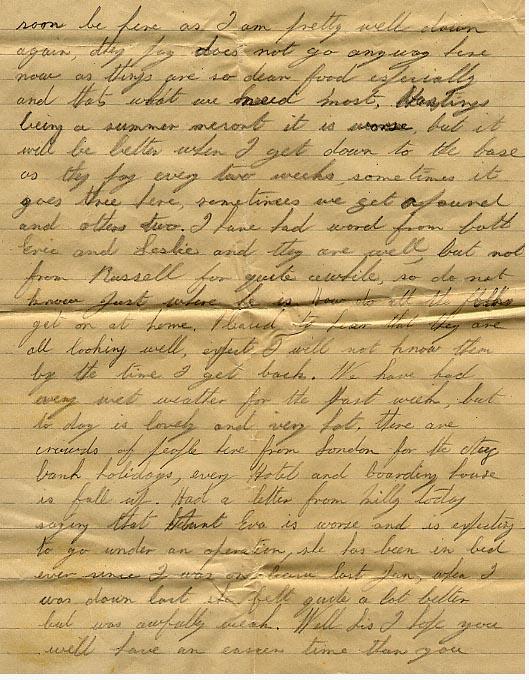 soon be here as I am pretty well down
again, they pay does not go anyway here
now as things are so dear food especially
and thats what we need most, Hastings
being a summer resort it is worse, but it
will be better when I get down to the base
as they pay every two weeks, sometimes it
goes three here, sometimes we get a pound
and others two. I have had word from both
Eric and Leslie and they are well, but not
from Russell for quite awhile, so do not
know just where he is How do all the
get on at home. Pleased to hear that they are
all looking well, expect I will not know them
by the time I get back. We have had
very wet weather for the past week, but
to day is lovely and very hot. There are
crowds of people here from London for the Aug
bank holidays, every Hotel and boarding house
is full up. Had a letter from today
saying that Aunt Eva is worse and is expecting
to go under an operation, she has been in bed
ever since I was on leave last Jan, when I
was down last she felt quite a lot better
but was awfully weak. Well Sis I hope you
will have an easier time than you